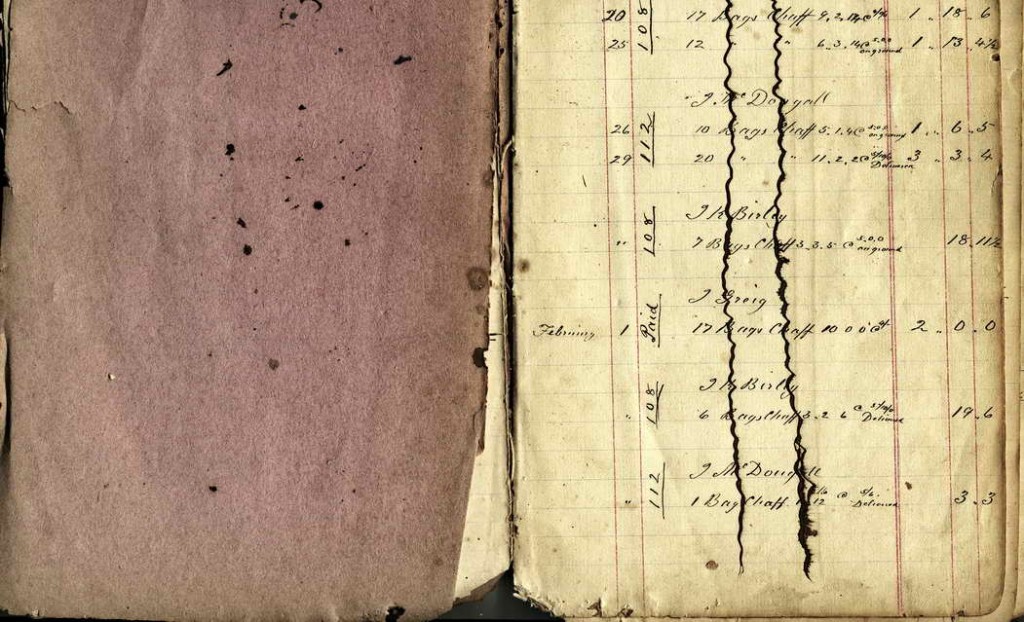 20 108 17 Bags Chaff 9.2.14 @ 1 .. 18 . 6
25 12 " " 6.3.14 @ 5.0.0 on ground 1 . 13 . 4½
J McDougall
26 112 10 Bags Chaff 5.1.4 @ 5.0.0 on ground 1 .. 6 . 5
29 20 " " 11.2.2 @ Delivered 3 .. 3 . 4
J K Birley
" 108 7 Bags Chaff 3.3.5 @ 5.0.0 on ground 18 . 11½
J Greig
February 1 Paid 17 Bags Chaff 10 0 0 2 .. 0 .. 0
J K Birley
" 108 6 Bags Chaff 3.2 6 @ Delivered 19 . 6
J McDougall
" 112 1 Bag Chaff @ Delivered 3 . 3